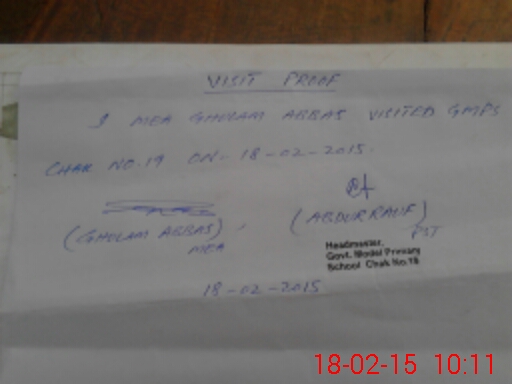 VISIT PROOF
I MEA GHOLAM ABBAS VISITED GMPS
CHAK NO.19 ON- 18-02-2015.
(GHOLAM ABBAS),
MEA
(ABDUR RAUF)
PST
Headmaster,
Govt. Model Primary
School Chak No.19
18-02-2015
18-02-15 10:11